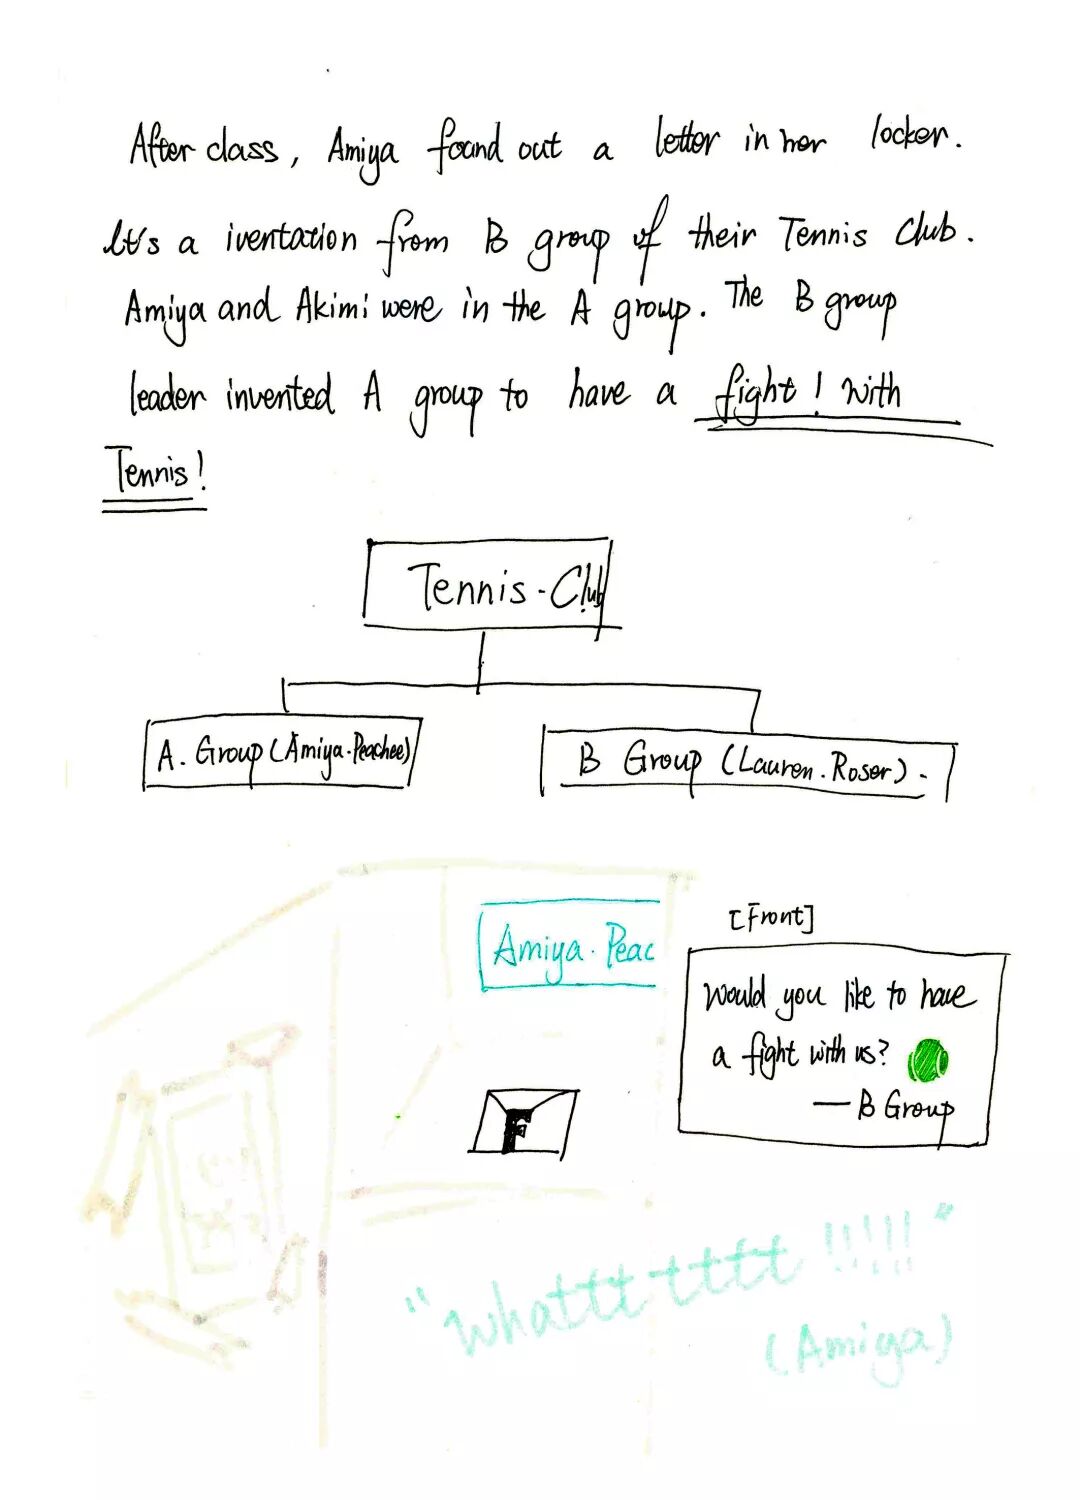 After class, Amiya found out a letter in her locker.
It's a iventation from B group of their Tennis Club.
Amiya and Akimi were in the A group. The B group
leader invented A group to have a fight! With
Tennis!
Tennis-Club
A. Group (Amiya.Peachee)
B Group (Lauren.Roser).
Amiya.Peac
[Front]
Would you like to have
a fight with us?
— B Group
F
"whattt tttt !!!!!"
(Amiya)